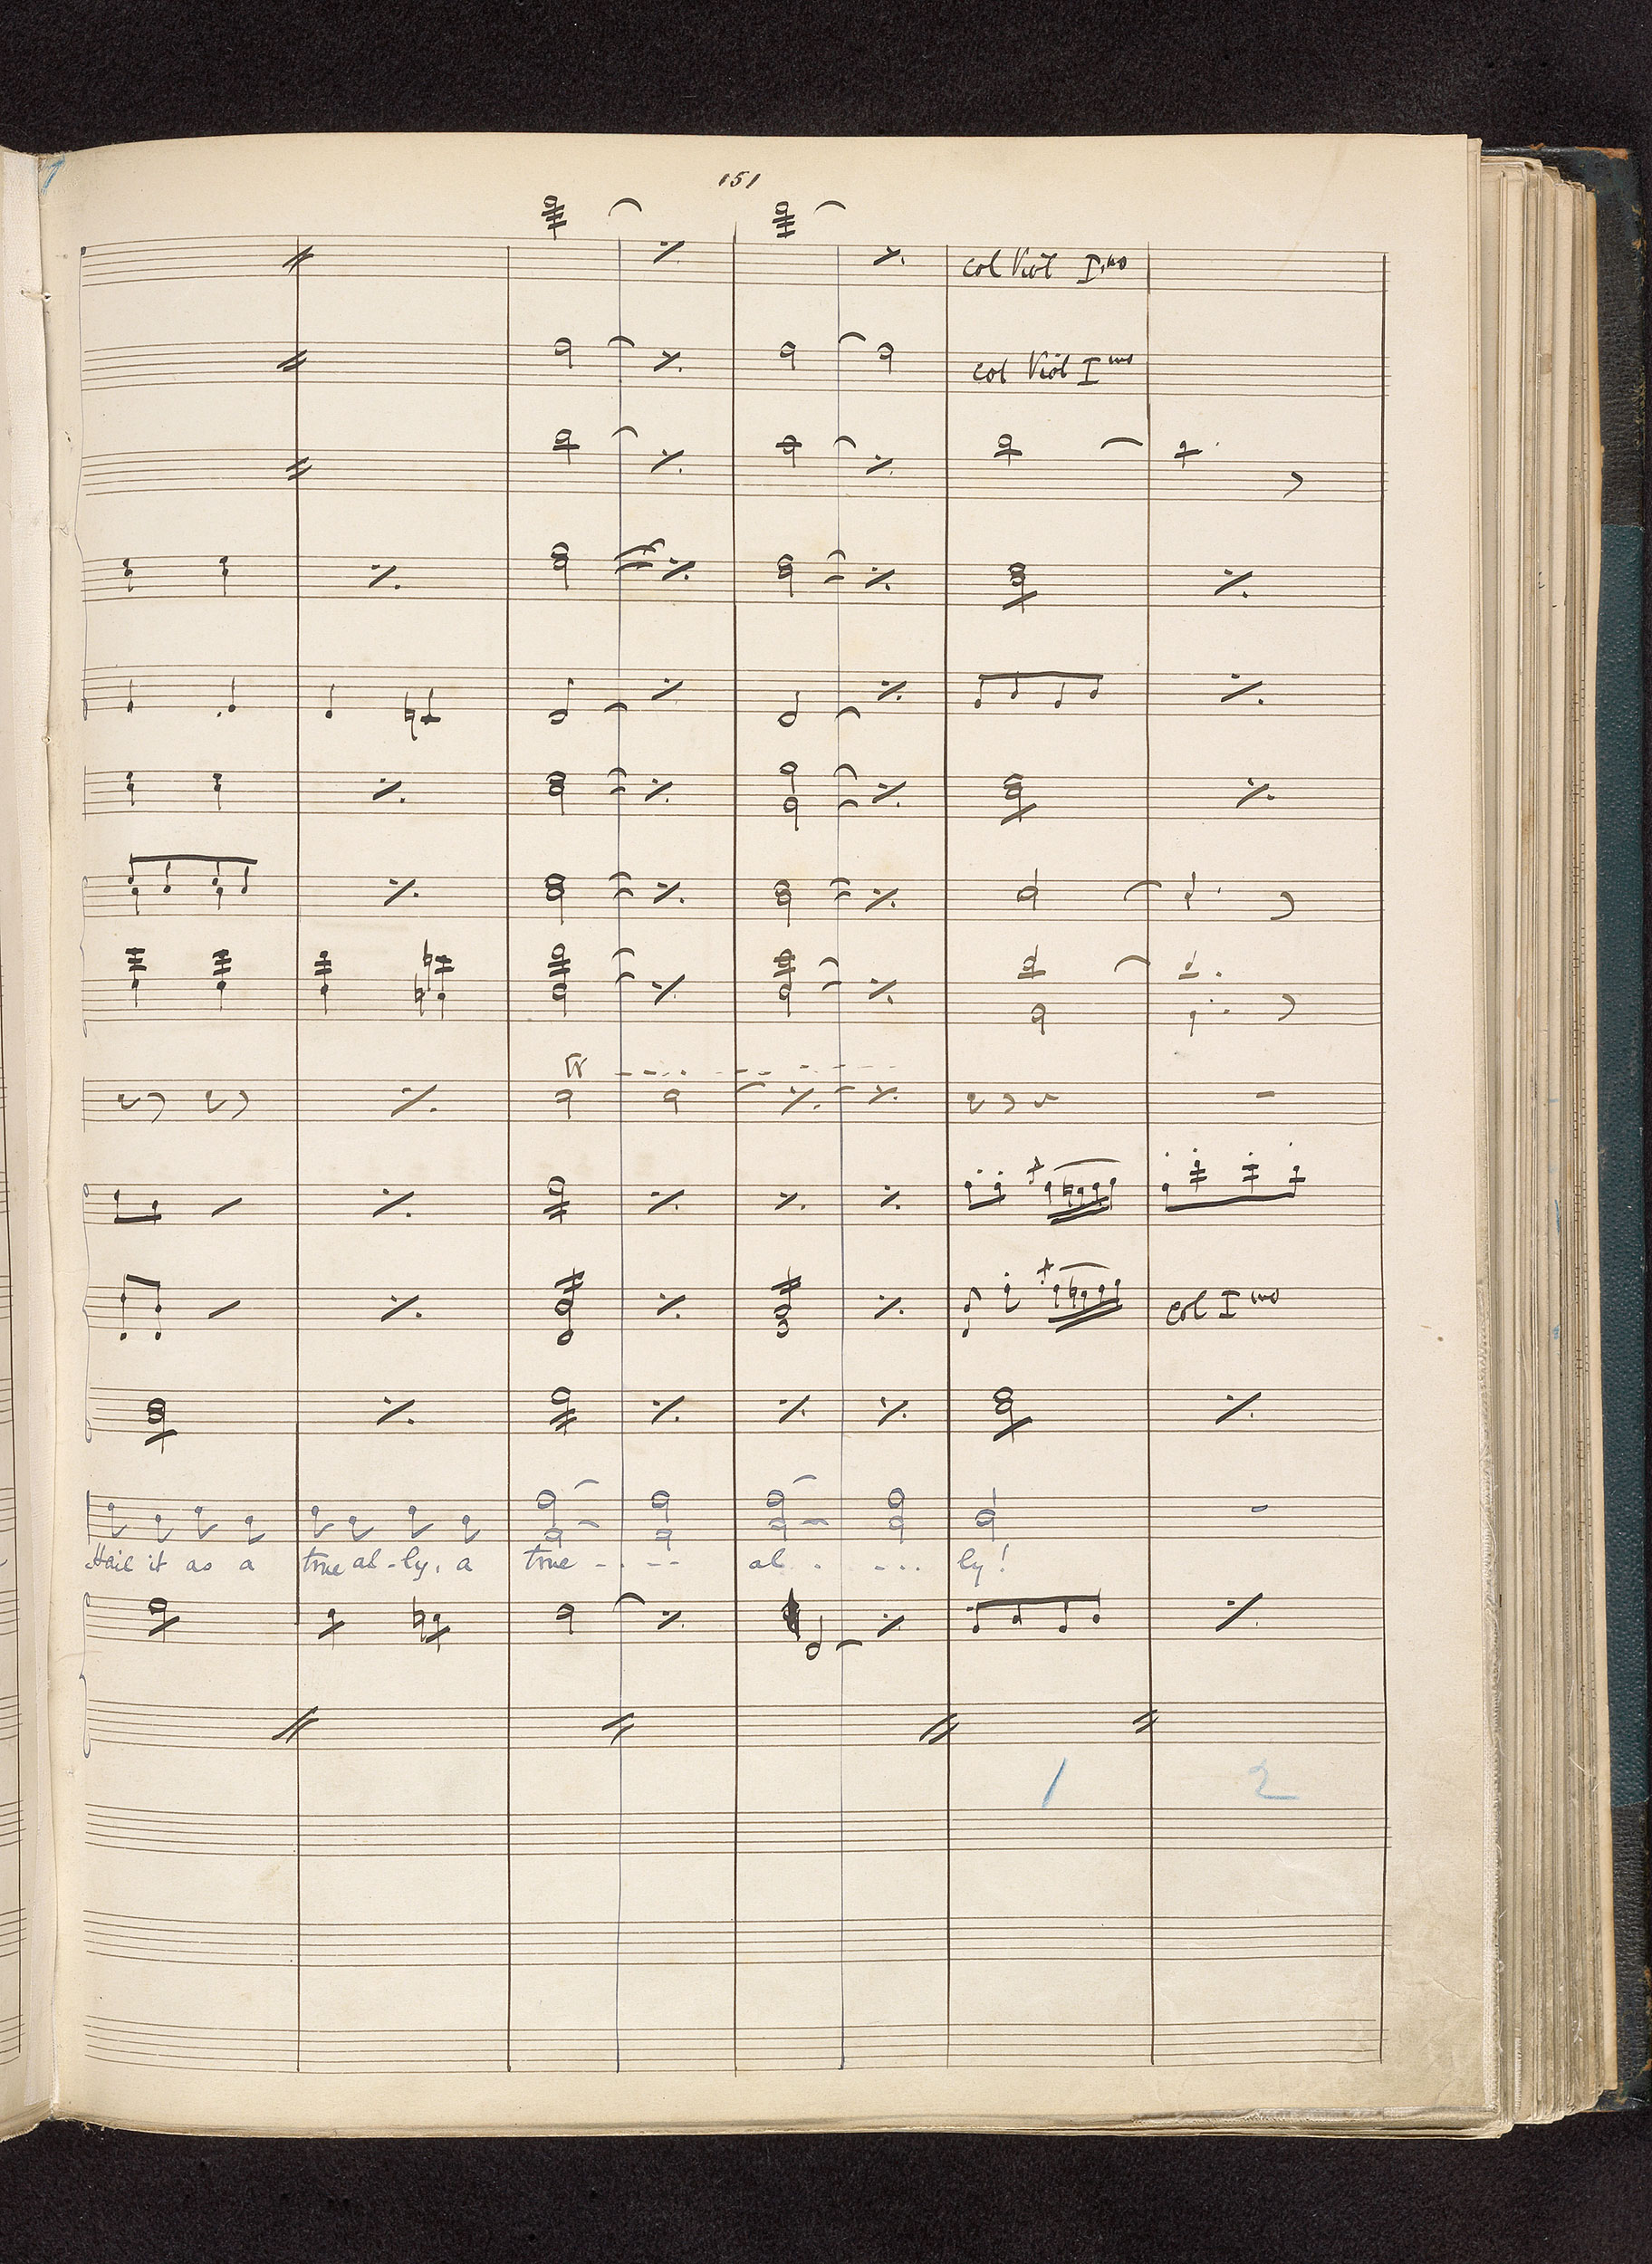 151
col Viol I.mo
col Viol I mo
tr
col I mo
Hail it as a true al-ly, a true - - - - al - - - - - ly!
1 2